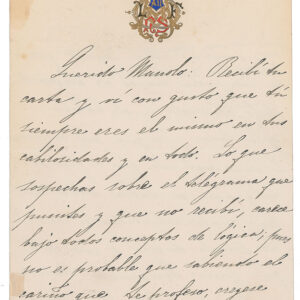 Querido Manolo: Recibí tu
carta y ví con gusto que tú
siempre eres el mismo en tus
cabilosidades y en todo. Lo que
sospechas sobre el telégrama que
pusistes y que no recibí, carece
bajo todos conceptos de lógica, pues
no es probable que sabiendo el
cariño que te profeso, creyese